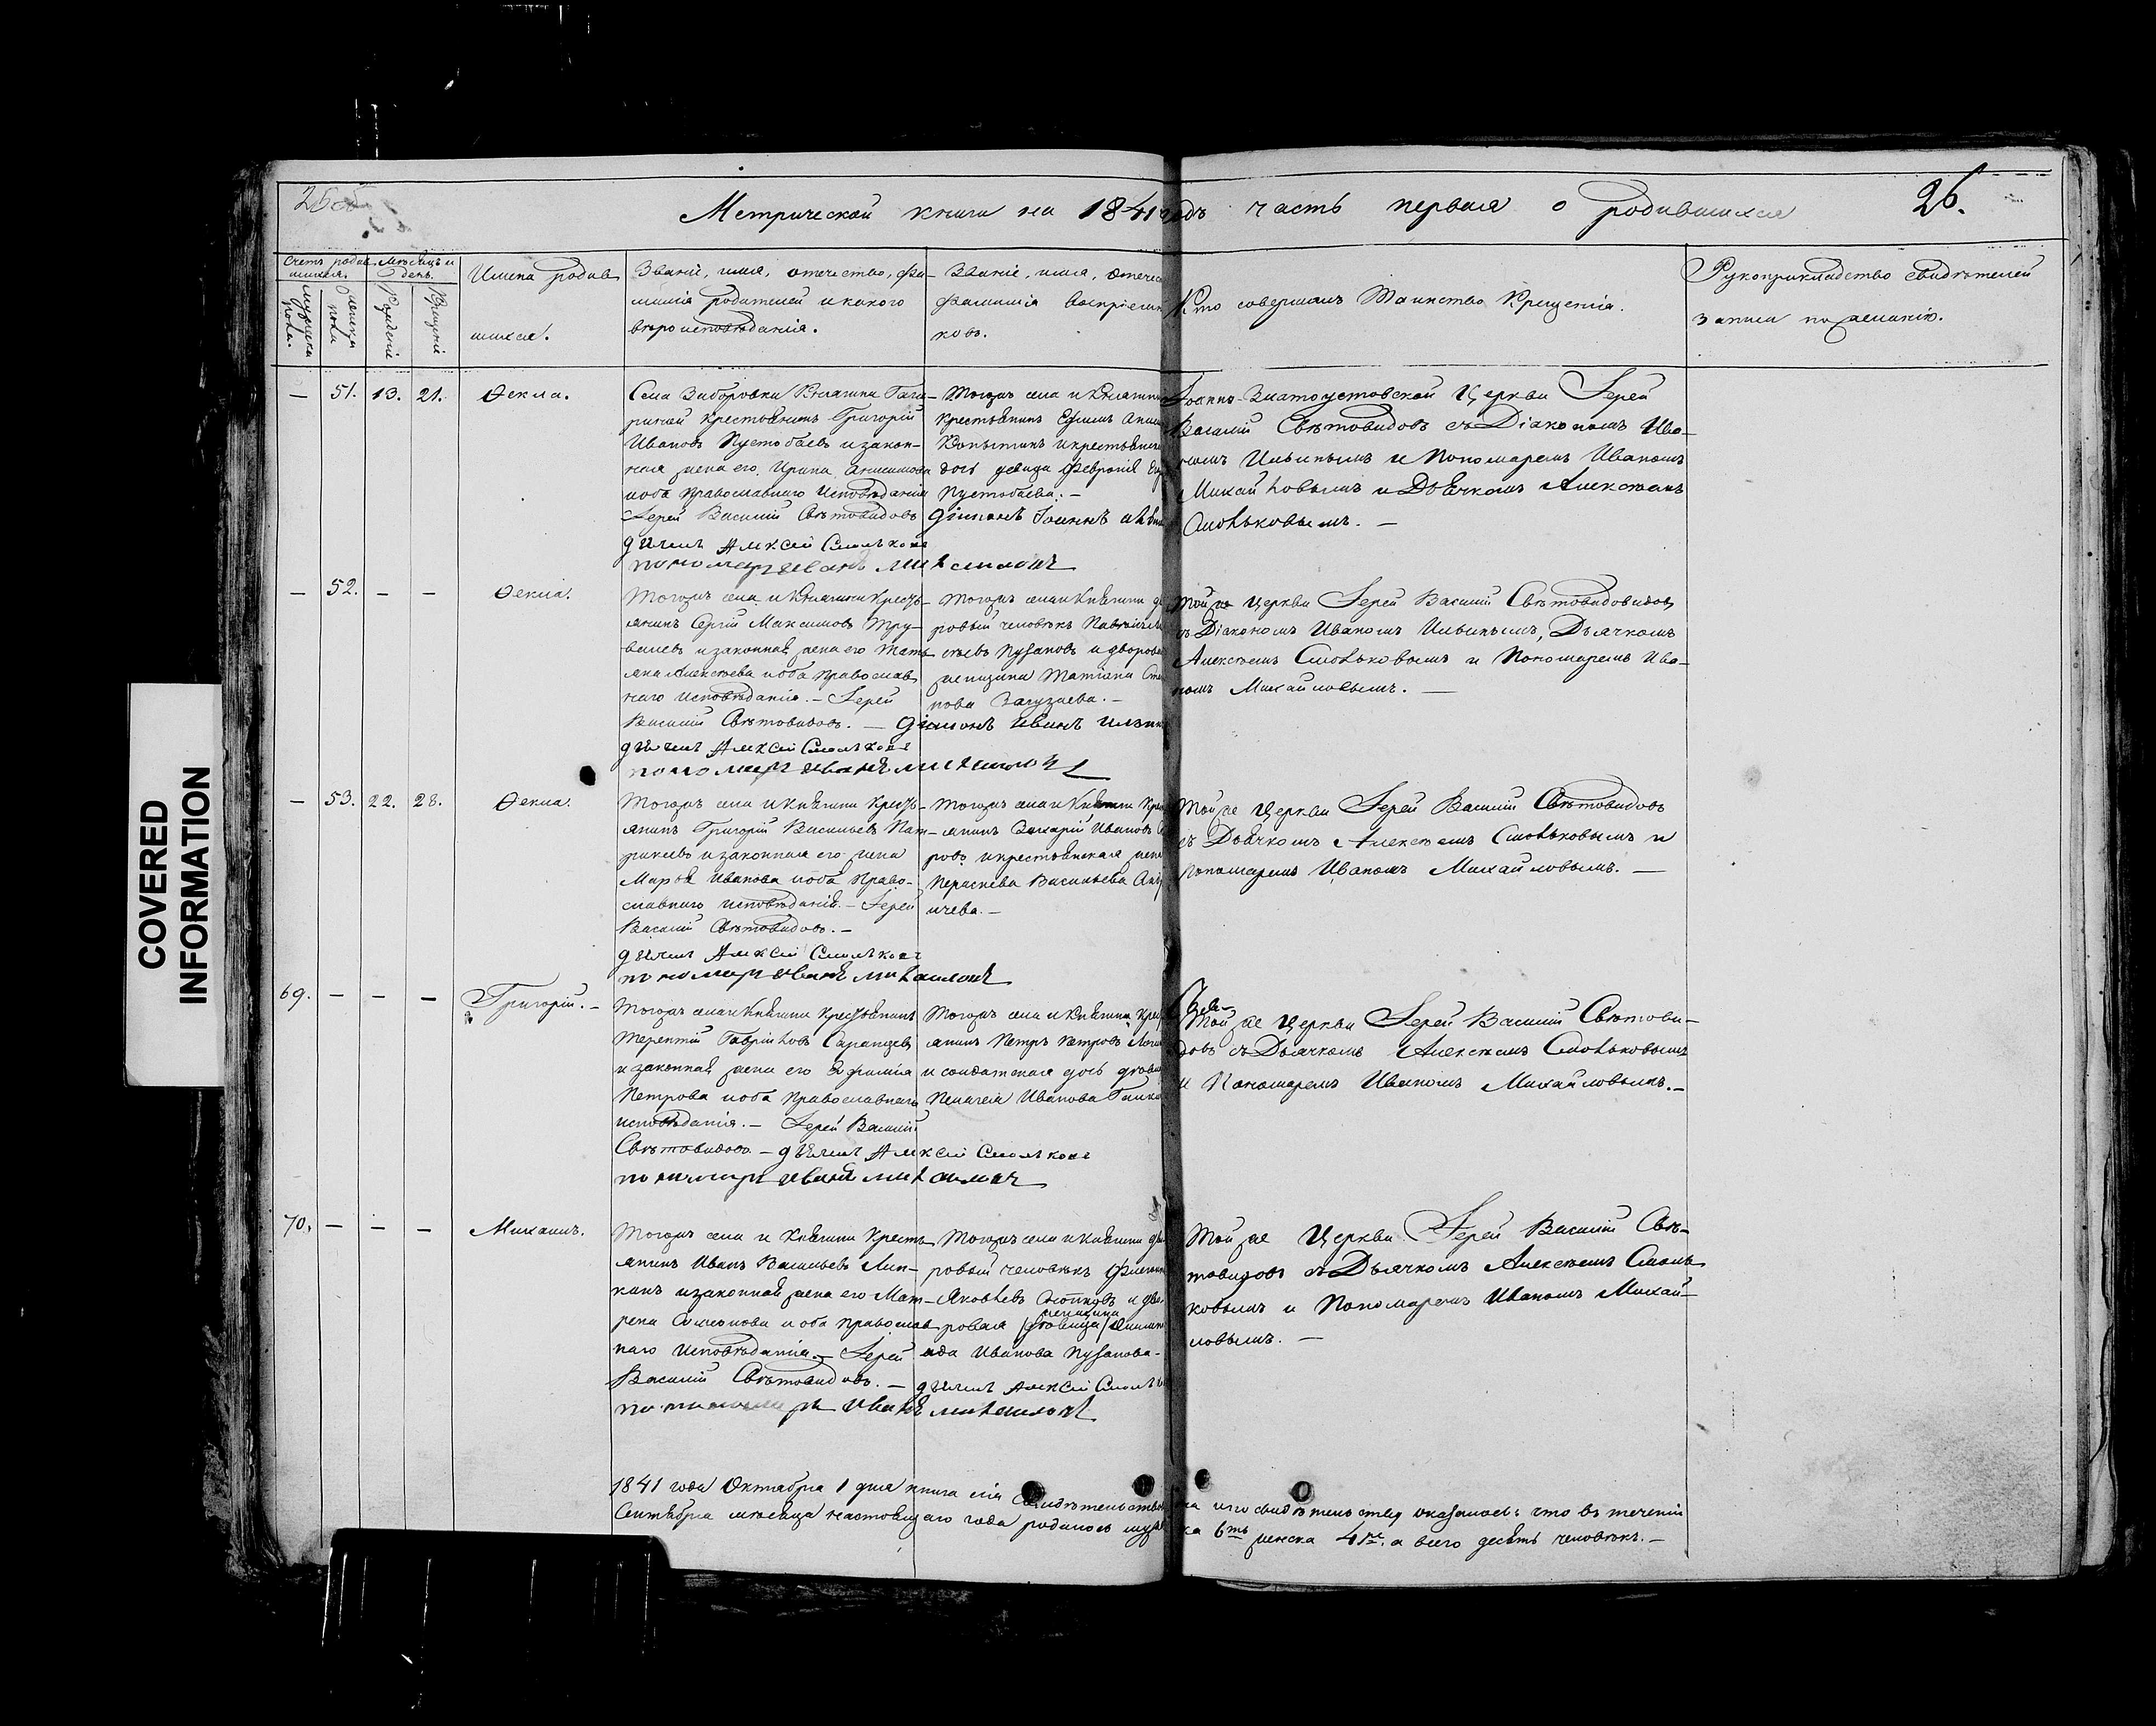 COVERED
INFORMATION
26.
Метрической книги на 1841 годъ часть первая о родившихся
Счетъ родив
шихся.
Мѣсяцъ и
день.
мужеска
пола.
женска
пола
Рожденіе
Крещеніе
Имена родив
шихся.
Званіе, имя, отечество, фа-
милія родителей и какого
вѣроисповѣданія.
Званіе, имя, отечес
фамилія воспріемни
ковъ.
Кто совершалъ Таинство Крещенія.
Рукоприкладство свидѣтелей
записи по желанію.
— 51. 13. 21. Ѳекла.
Села Зиборовки Княгини Гага-
риной крестьянинъ Григорій
Ивановъ Пустобаевъ и закон-
ная жена его Ирина Анисимова
и оба православнаго исповѣданія
Іерей Василій Свѣтовидовъ
дьячекъ Алексей Смольковъ
пономарь Иванъ Михаиловъ
Тогожъ села и Княгини
крестьянинъ Ефимъ
и крестьянск
дочь девица Февронія
Пустобаева. —
діаконъ Іоаннъ
Іоанно-Златоустовской Церкви Іерей
Василій Свѣтовидовъ съ Діакономъ Ива-
номъ Ильинымъ и Пономаремъ Иваномъ
Михайловымъ и Дьячкомъ Алексѣемъ
Смольковымъ. —
— 52. — — Ѳекла.
Тогожъ села и Княгини Кресть-
янинъ Сергій Максимовъ Тру-
велевъ и законная жена его Тать-
яна Алексѣева и оба православ
наго исповѣданія. — Іерей
Василій Свѣтовидовъ. —
дьячекъ Алексей Смольковъ
пономарь Иванъ Михаиловъ
Тогожъ села и Княгини д
ровый человѣкъ
сѣевъ Пузановъ и дворова
женщина Татіана Сте
нова —
діаконъ Иванъ Ильин
Той же Церкви Іерей Василій Свѣтовидовидовъ
съ Діакономъ Иваномъ Ильинымъ, Дьячкомъ
Алексѣемъ Смольковымъ и Пономаремъ Ива-
номъ Михайловымъ. —
— 53. 22. 28. Ѳекла.
Тогожъ села и Княгини Кресть-
янинъ Григорій Васильевъ Пат-
рикеевъ и законная его жена
Марѳа Иванова и оба Право-
славнаго исповѣданія. — Іерей
Василій Свѣтовидовъ. —
дьячекъ Алексей Смольковъ
пономарь Иванъ Михаиловъ
Тогожъ села и Княгини Крес
янинъ Захарій Ивановъ
ровъ и крестьянская жена
Параскева Васильева
ичева. —
Той же Церкви Іерей Василій Свѣтовидовъ
съ Дьячкомъ Алексѣемъ Смольковымъ и
Пономаремъ Иваномъ Михайловымъ. —
69. — — — Григорій. —
Тогожъ села и Княгини Крестьянинъ
Терентій Гавріиловъ Саранцевъ
и законная жена его Ефимія
Петрова и оба Православнаго
исповѣданія. — Іерей Василій
Свѣтовидовъ — дьячекъ Алексей Смольковъ
пономарь Иванъ Михаиловъ
Тогожъ села и Княгини Крес
янинъ Петръ Петровъ
и солдатская дочь
Пелагея Иванова
Той же Церкви Іерей Василій Свѣтови-
довъ съ Дьячкомъ Алексѣемъ Смольковымъ
и Пономаремъ Иваномъ Михайловымъ. —
70. — — — Михаилъ.
Тогожъ села и Княгини Кресть-
янинъ Иванъ Васильевъ Лип-
канъ и законная жена его Мат-
рена Симонова и оба православ
наго исповѣданія. — Іерей
Василій Свѣтовидовъ. — дьячекъ Алексей Смольк
пономарь Иванъ Михаиловъ
Тогожъ села и Княгини дво
ровый человѣкъ
Яковлевъ и дво
женщина
ровая /вдовица/
ада Иванова Пузанова.
Той же Церкви Іерей Василій Свѣ-
товидовъ съ Дьячкомъ Алексѣемъ Смоль
ковымъ и Пономаремъ Иваномъ Михай-
ловымъ. —
1841 года Октября 1 дня книга сія свидѣтельствована и по свидѣтельству оказалось: что въ теченіи
Сентября мѣсяца настоящаго года родилось мужеска 6ть женска 4ре. а всего десять человѣкъ. —